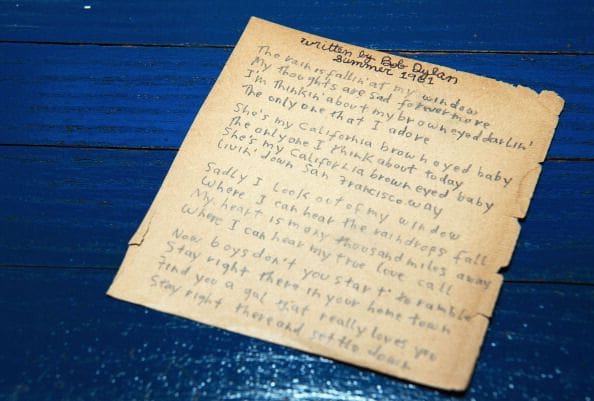 written by Bob Dylan
Summer 1961
The rain is fallin' at my window
My thoughts are sad forever more
I'm thinkin' about my brown eyed darlin'
The only one that I adore
She's my California brown eyed baby
The only one I think about today
She's my California brown eyed baby
livin' down San Francisco way
Sadly I look out of my window
Where I can hear the raindrops fall
My heart is many thousand miles away
Where I can hear my true love call
Now boys don't you start to ramble
Stay right there in your home town
Find you a gal that really loves you
Stay right there and settle down